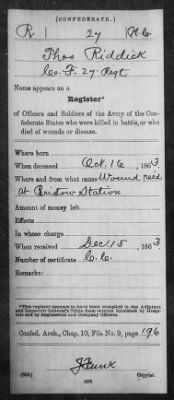 (CONFEDERATE.)
R 27 N.C.
Thos Riddick
Co. F. 27 Regt
Name appears on a
Register*
of Officers and Soldiers of the Army of the Con-
federate States who were killed in battle, or who
died of wounds or disease.
Where born
When deceased Oct. 16, 1863
Where and from what cause Wound rec'd
at Bristow Station
Amount of money left
Effects
In whose charge
When received Dec. 15, 1863
Number of certificate C.C.
Remarks:
*This register appears to have been compiled in the Adjutant
and Inspector General's Office from returns furnished by Hospi-
tals and by Regimental and Company Officers.
Confed. Arch., Chap. 10, File No. 9, page 196
J Funk
Copyist.